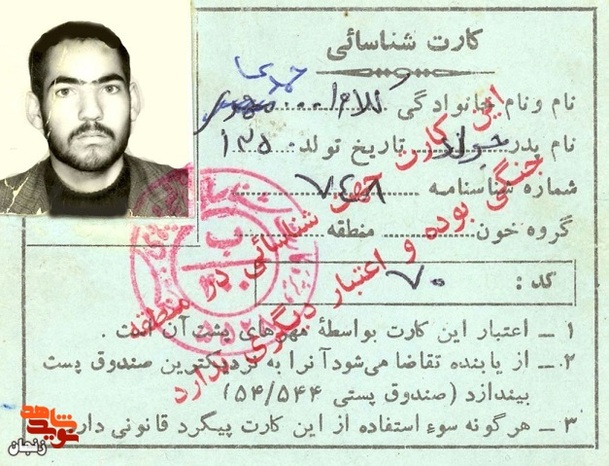 کارت شناسائی
نام و نام خانوادگی غلامرضا
نام پدر جواد تاریخ تولد ۱۳۵۰
شماره شناسنامه ۷۴۸
گروه خون منطقه
کد : ۷۰
۱ ــ اعتبار این کارت بواسطهٔ مهرهای پشت آن است .
۲ ــ از یابنده تقاضا می‌شود آنرا به نزدیکترین صندوق پست
بیندازد (صندوق پستی ۵۴/۵۴۴)
۳ ــ هرگونه سوء استفاده از این کارت پیگرد قانونی دارد
این کارت جهت شناسائی در منطقه
جنگی بوده و اعتبار دیگری ندارد
ب
نوید شاهد
زنجان